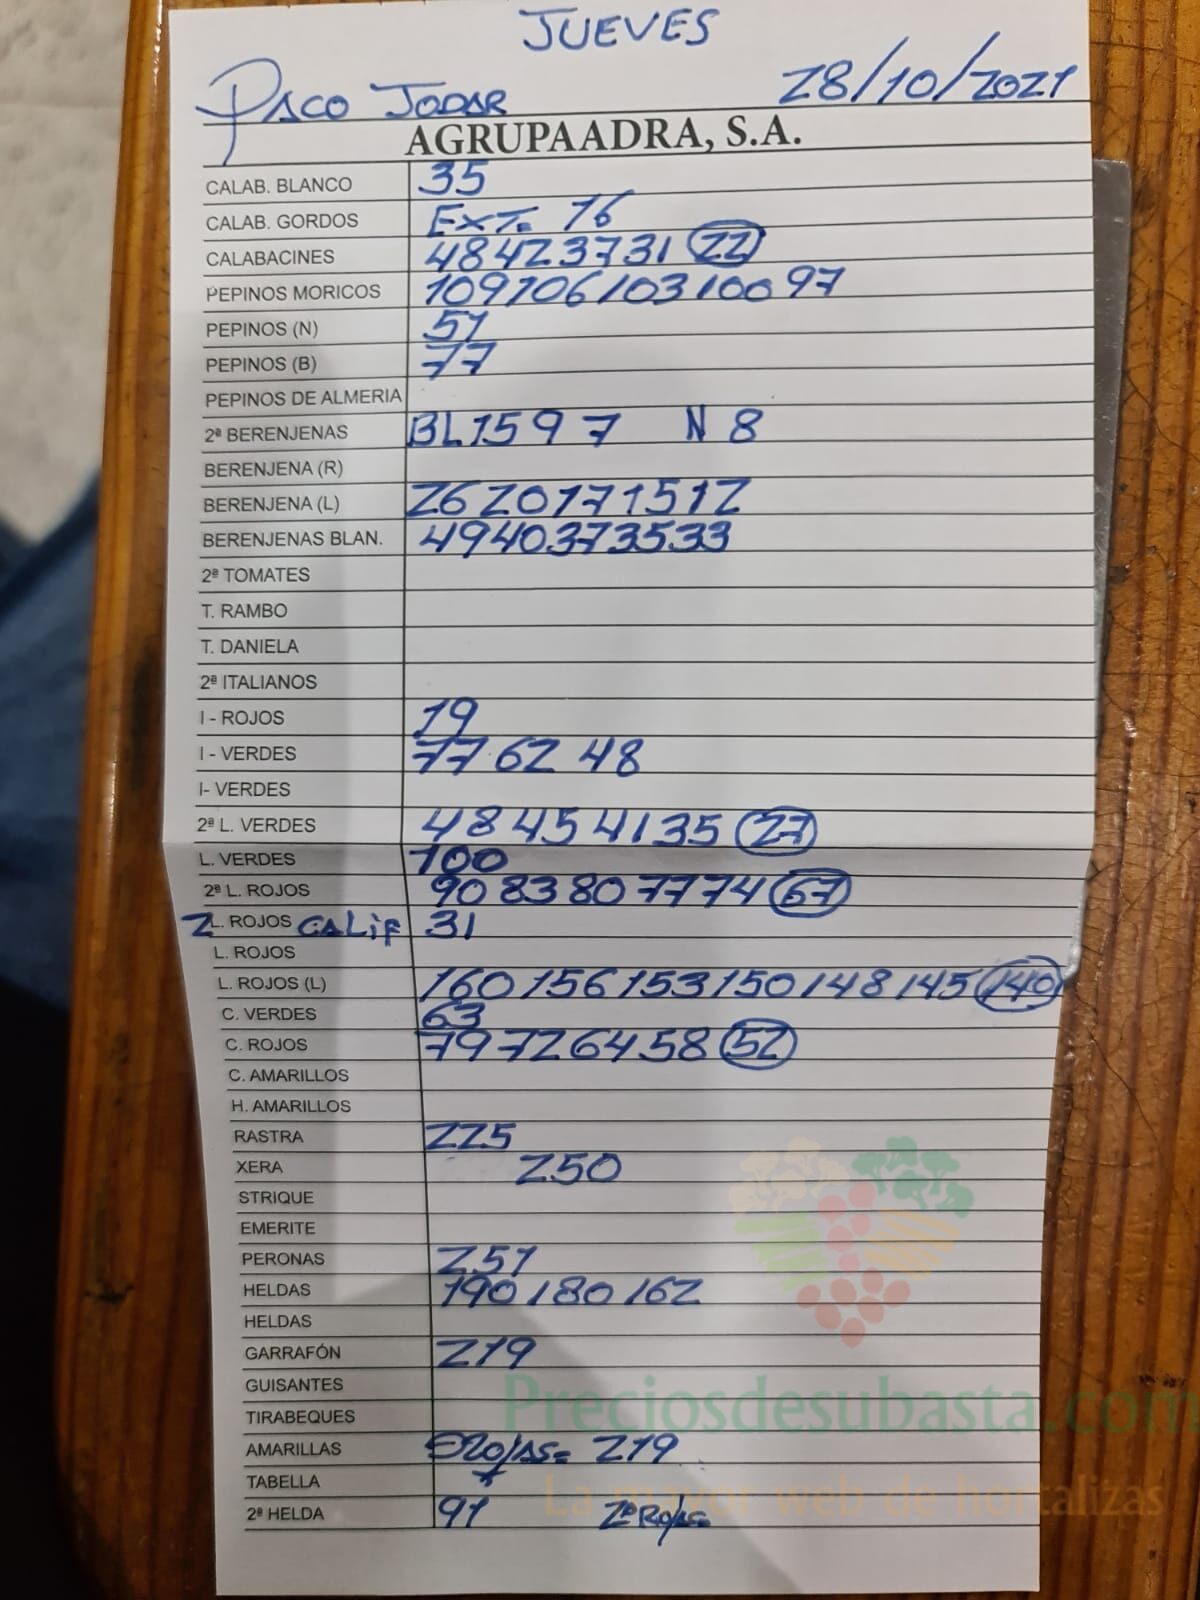 JUEVES
PACO JODAR 28/10/2021
AGRUPAADRA, S.A.
CALAB. BLANCO 35
CALAB. GORDOS EXT. 16
CALABACINES 48 42 37 31 22
PEPINOS MORICOS 109 106 103 100 97
PEPINOS (N) 51
PEPINOS (B) 77
PEPINOS DE ALMERIA
2ª BERENJENAS BL 15 9 7 N 8
BERENJENA (R)
BERENJENA (L) 26 20 17 15 12
BERENJENAS BLAN. 49 40 37 35 33
2ª TOMATES
T. RAMBO
T. DANIELA
2ª ITALIANOS
I - ROJOS 19
I - VERDES 77 62 48
I- VERDES
2ª L. VERDES 48 45 41 35 27
L. VERDES 100
2ª L. ROJOS 90 83 80 77 74 67
2 L. ROJOS CALIF 31
L. ROJOS
L. ROJOS (L) 160 156 153 150 148 145 140
C. VERDES 63
C. ROJOS 79 72 64 58 52
C. AMARILLOS
H. AMARILLOS
RASTRA 225
XERA 250
STRIQUE
EMERITE
PERONAS 251
HELDAS 190 180 162
HELDAS
GARRAFÓN 219
GUISANTES
TIRABEQUES
AMARILLAS 219
TABELLA
2ª HELDA 91 2ª Rojas
Preciosdesubasta.com
La mayor web de hortalizas